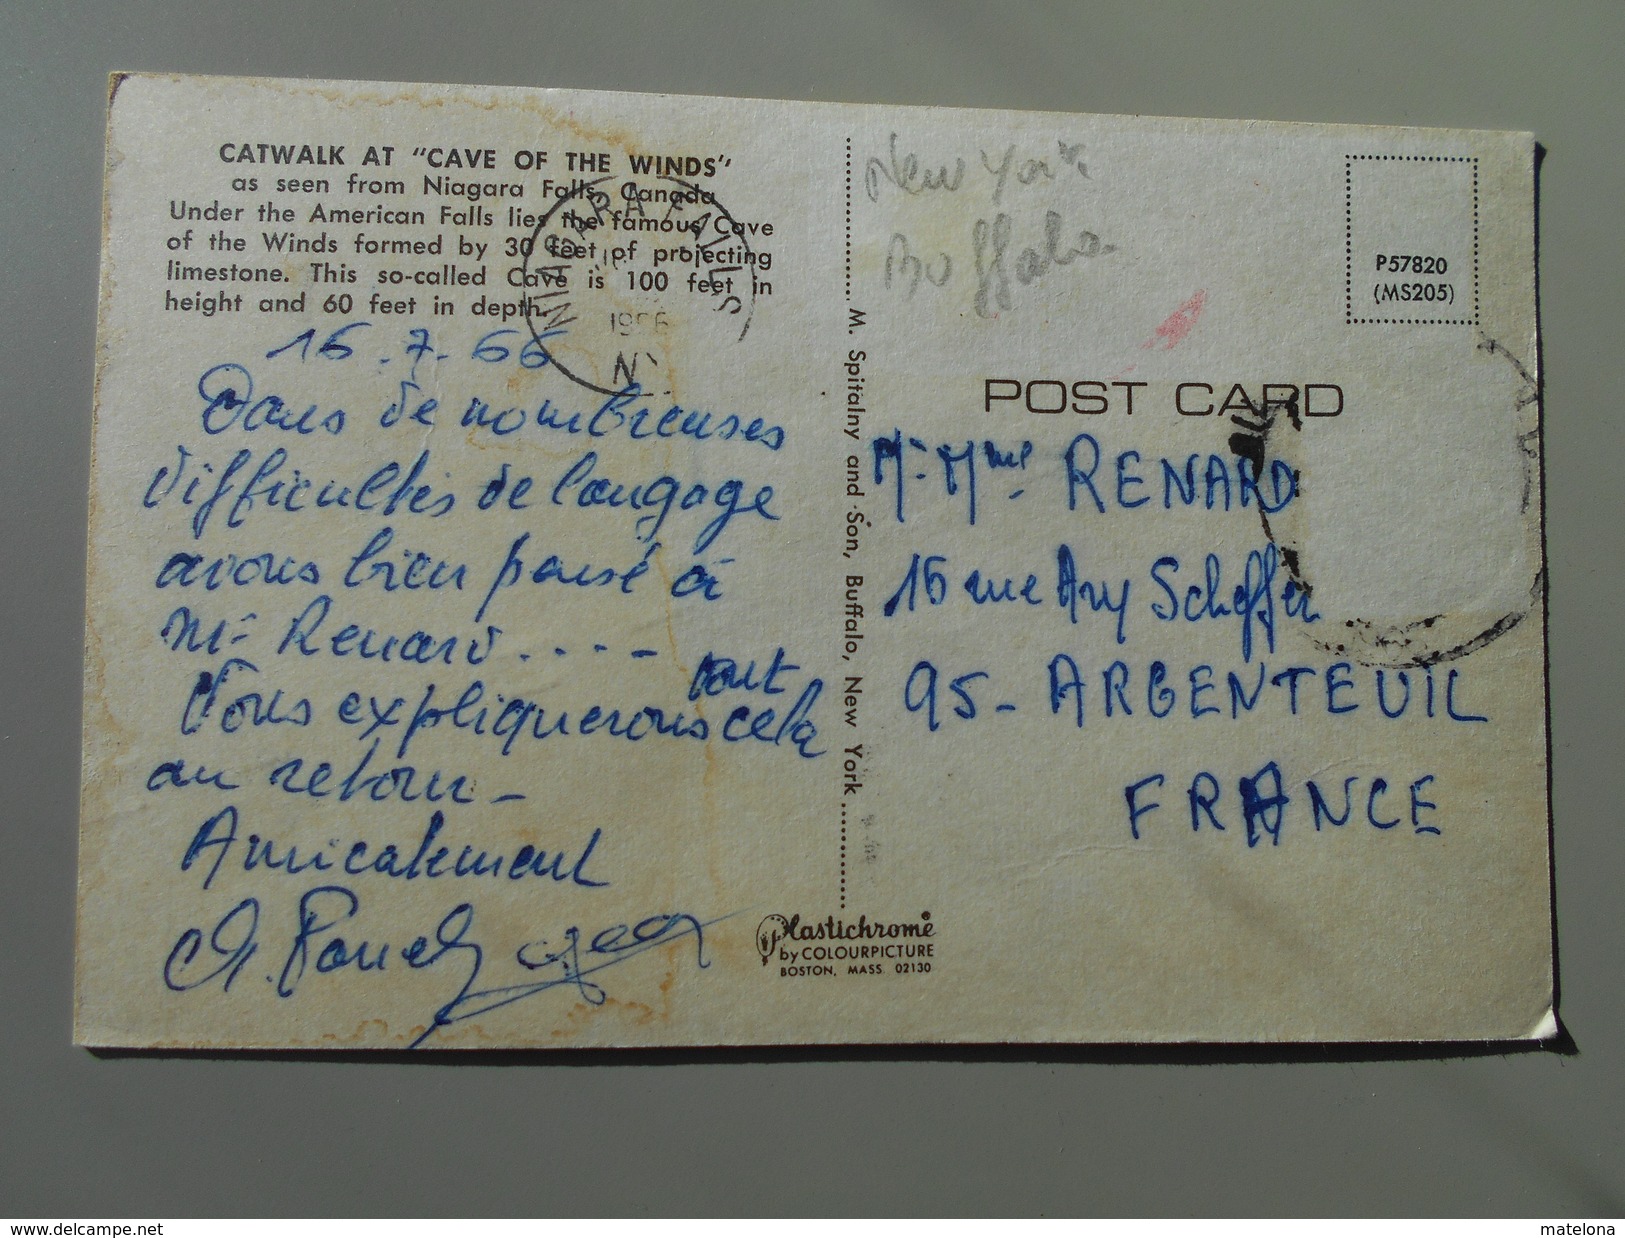 CATWALK AT "CAVE OF THE WINDS"
as seen from Niagara Falls, Canada
Under the American Falls lies the famous Cave
of the Winds formed by 30 feet of projecting
limestone. This so-called Cave is 100 feet in
height and 60 feet in depth.
NIAGARA FALLS
1966
NY
16.7.66
Dans de nombreuses
difficultés de langage
avons bien pensé à
Mr Renard....-
Vous expliquerons tout cela
au retour -
Amicalement
M. Spitalny and Son, Buffalo, New York
Plastichrome®
by COLOURPICTURE
BOSTON, MASS 02130
New York
Buffalo
P57820
(MS205)
POST CARD
Mr Mme RENARD
16 rue Ary Scheffer
95 - ARGENTEUIL
FRANCE
www.delcampe.net
matelona